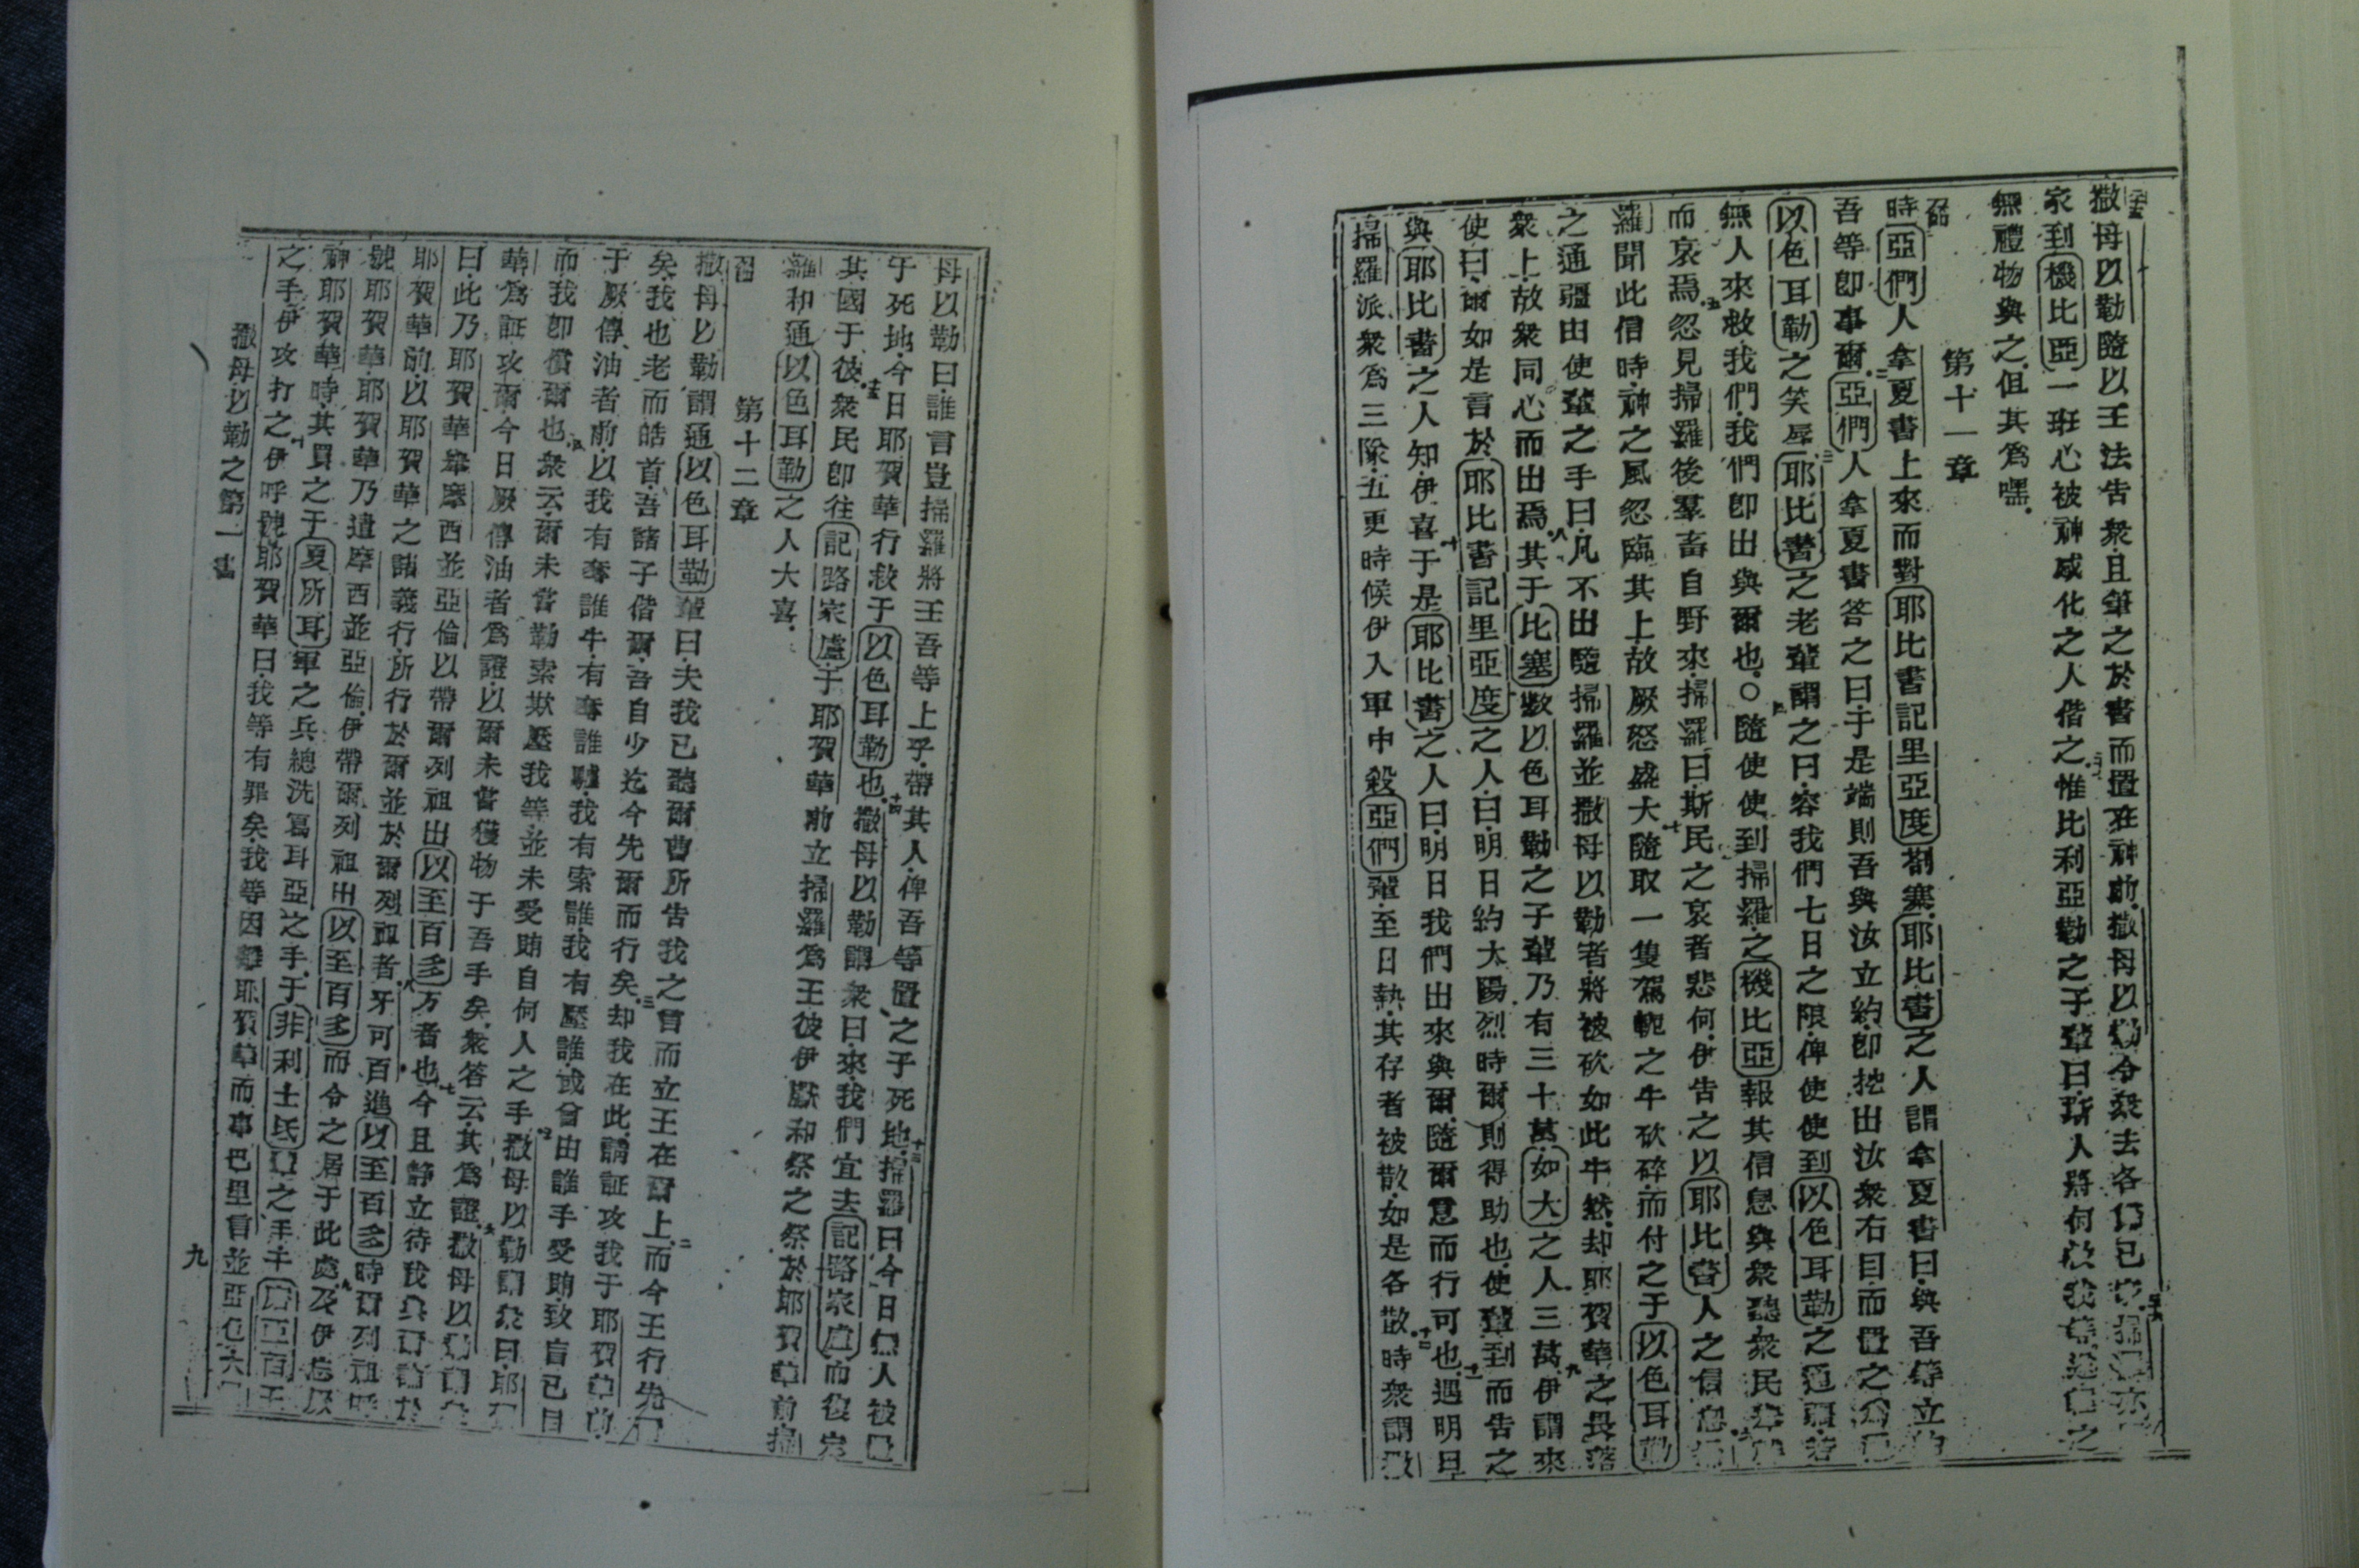 撒母以勒隨以王法告衆且筆之於書而置在神前撒母以勒令衆去各
家到機比亞一班心被神感化之人偕之惟比利亞勒之子輩曰斯人將何
無禮物與之但其爲嘿
第十一章
時亞們人拿夏書上來而對耶比書記里亞度劄塞耶比書之人謂拿夏書曰與吾等立約
吾等卽事爾亞們人拿夏書答之曰于是端則吾與汝立約卽挖出汝衆右目而置之
以色耳勒之笑辱耶比書之老輩謂之曰容我們七日之限俾使使到以色耳勒之通疆若
無人來救我們我們卽出與爾也○隨使使到掃羅之機比亞報其信息與衆聽衆民
而哀焉忽見掃羅後羣畜自野來掃羅曰斯民之哀者悲何伊告之以耶比書人之信息
羅聞此信時神之風忽臨其上故厥怒盛大隨取一隻駕軛之牛砍碎而付之于以色耳勒
之通疆由使輩之手曰凡不出隨掃羅並撒母以勒者將被砍如此牛然却耶賀華之畏落
衆上故衆同心而出焉其于比塞數以色耳勒之子輩乃有三十萬如大之人三萬伊謂來
使曰爾如是言於耶比書記里亞度之人曰明日約太陽烈時爾則得助也使輩到而告之
與耶比書之人知伊喜于是耶比書之人曰明日我們出來與爾隨爾意而行可也遇明日
掃羅派衆爲三隊五更時候伊入軍中殺亞們輩至日熱其存者被散如是各散時衆謂撒
母以勒曰誰言豈掃羅將王吾等上乎帶其人俾吾等置之于死地掃羅曰今日無人被
于死地今日耶賀華行救于以色耳勒也撒母以勒謂衆曰來我們宜去記路家盧而復定
其國于彼衆民卽往記路家盧于耶賀華前立掃羅爲王彼伊獻和祭之祭於耶賀華前掃
羅和通以色耳勒之人大喜
第十二章
撒母以勒謂通以色耳勒輩曰夫我已聽爾曹所告我之言而立王在爾上而今王行先
矣我也老而皓首吾諸子偕爾吾自少迄今先爾而行矣却我在此謂証攻我于耶賀華前
于厥傳油者前以我有奪誰牛有奪誰驢我有索誰我有壓誰或曾由誰手受賄致盲己目
而我卽償爾也衆云爾未嘗勒索欺壓我等並未受賄自何人之手撒母以勒謂衆曰耶賀
華爲証攻爾今日厥傳油者爲證以爾未嘗獲物于吾手矣衆答云其爲證撒母以勒
曰此乃耶賀華舉摩西並亞倫以帶爾列祖出以至百多方者也今且靜立待我
耶賀華前以耶賀華之諸義行所行於爾並於爾列祖者牙可百進以至百多時爾列祖呼
號耶賀華耶賀華乃遣摩西並亞倫伊帶爾列祖出以至百多而令之居于此處及伊忘厥
神耶賀華時其買之于夏所耳軍之兵總洗篤耳亞之手于非利士氐輩之手
之手伊攻打之伊呼號耶賀華曰我等有罪矣我等因離耶賀華而事巴里音並亞
撒母以勒之第一書
九